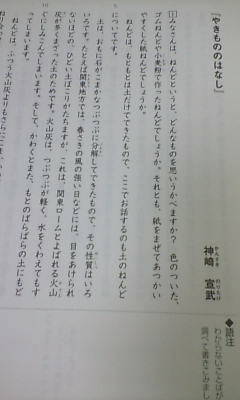 『やきもののはなし』
神崎 宣武
かんざき のりたけ
1 みなさんは、ねんどというと、どんなものを思いうかべますか? 色のついた、
ゴムねんどや小麦粉で作ったねんどでしょうか。それとも、紙をまぜてあつかい
やすくした紙ねんどでしょうか。
ねんどは、もともとは土だけでできたもので、ここでお話するのも土のねんど
についてです。
土は、もともと岩石がこまかなつぶつぶに分解してできたもので、その性質はいろ
いろです。たとえば関東地方では、春さきの風の強い日などには、目をあけられ
ないほどの、ひどい土ぼこりがたちますが、これは、関東ロームとよばれる火山
灰が多くまざった土のためです。火山灰は、つぶつぶが軽く、水をくわえてもす
ぐにしみこんでしまいます。そして、かわくとまた、もとのばらばらの土にもど
ってしまいます。
ねんどは、ふつう火山灰よりもさらにこま
5
10
◆語注
わからないことばが
調べて書きこみまし